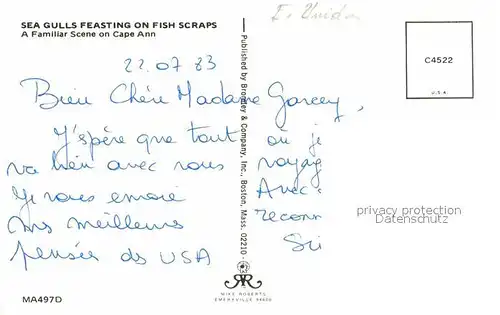 SEA GULLS FEASTING ON FISH SCRAPS
A Familiar Scene on Cape Ann
22.07 83
Bien Chère Madame Garcey,
J'spère que tout
va bien avec vous
Je vous envoie
mes meilleures
pensées ds USA
où je
voyag
Avec
reconn
Published by Bromley & Company, Inc., Boston, Mass. 02210
C4522
U.S.A.
privacy protection
Datenschutz
MIKE ROBERTS
EMERYVILLE 94608
MA497D